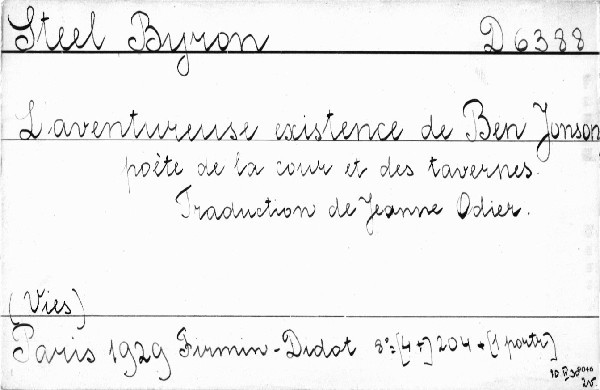 Steel Byron D6388
L'aventureuse existence de Ben Jonson
poète de la cour et des tavernes.
Traduction de Jeanne Odier.
(Vies)
Paris 1929 Firmin-Didot 8°=[4+] 204 +[1 portr]